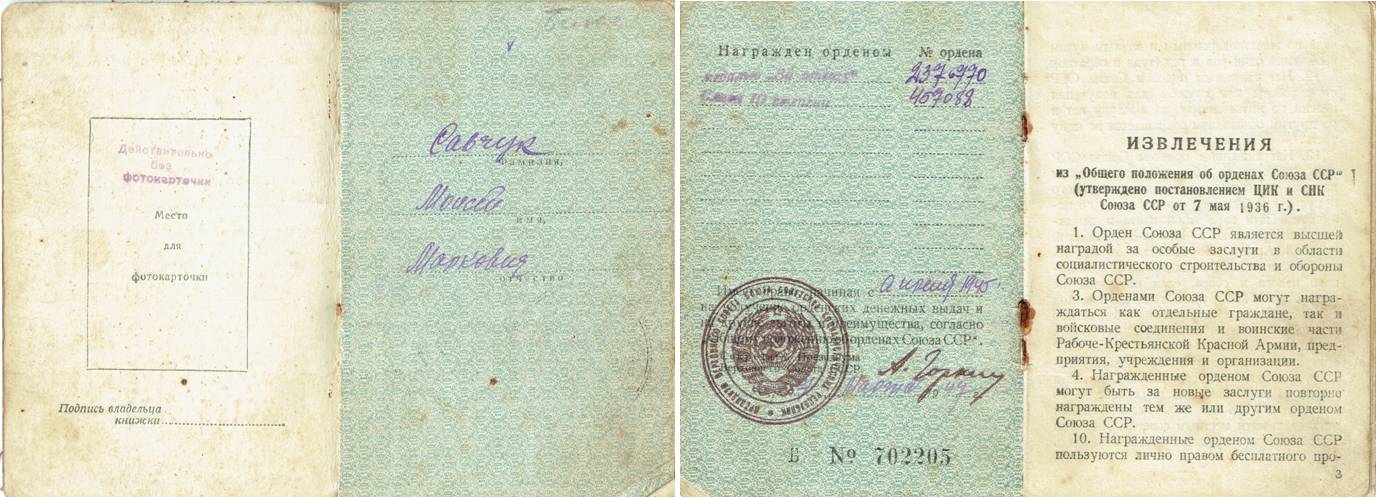 Действительно
без
фотокарточки
Место
для
фотокарточки
Подпись владельца
книжки
Савчук
фамилия,
Моисей
имя,
Маркович
отчество
Награжден орденом № ордена
медалью „За отвагу“ 237970
Славы III степени 457088
начиная с апреля 1945 г.
денежных выдач и
преимущества, согласно
орденах Союза ССР“.
Президиума
А. Горкин
марта 1947 г.
Б № 702205
ИЗВЛЕЧЕНИЯ
из „Общего положения об орденах Союза ССР“
(утверждено постановлением ЦИК и СНК
Союза ССР от 7 мая 1936 г.).
1. Орден Союза ССР является высшей
наградой за особые заслуги в области
социалистического строительства и обороны
Союза ССР.
3. Орденами Союза ССР могут награ-
ждаться как отдельные граждане, так и
войсковые соединения и воинские части
Рабоче-Крестьянской Красной Армии, пред-
приятия, учреждения и организации.
4. Награжденные орденом Союза ССР
могут быть за новые заслуги повторно
награждены тем же или другим орденом
Союза ССР.
10. Награжденные орденом Союза ССР
пользуются лично правом бесплатного про-
3